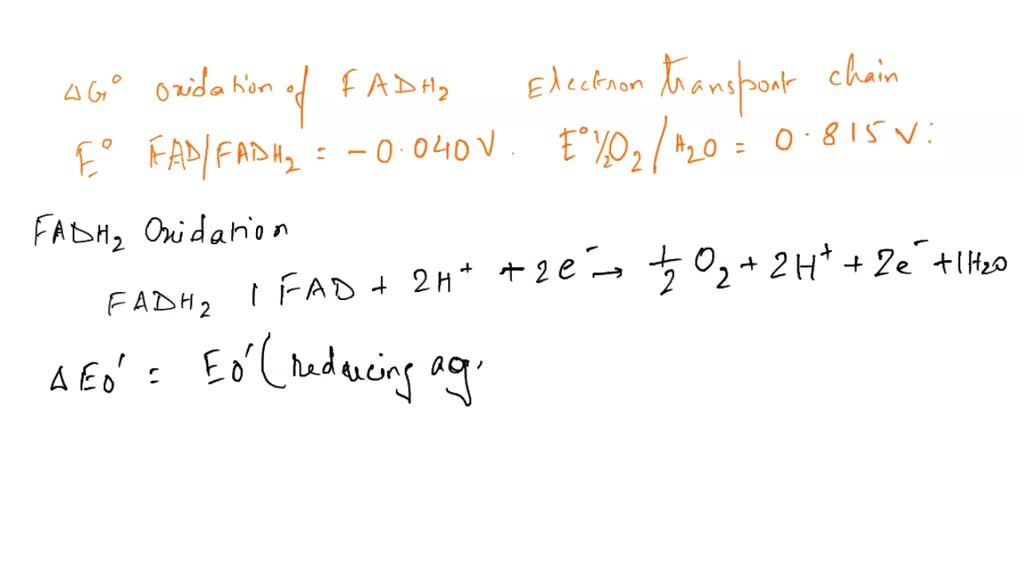 ΔG° oxidation of FADH₂ Electron transport chain
E° FAD/FADH₂ = -0.040V. E° ½O₂/H₂O = 0.815V:
FADH₂ Oxidation
FADH₂ | FAD + 2H⁺ + 2e⁻ → ½ O₂ + 2H⁺ + 2e⁻ + 1H₂O
ΔE₀' = E₀' (reducing ag.